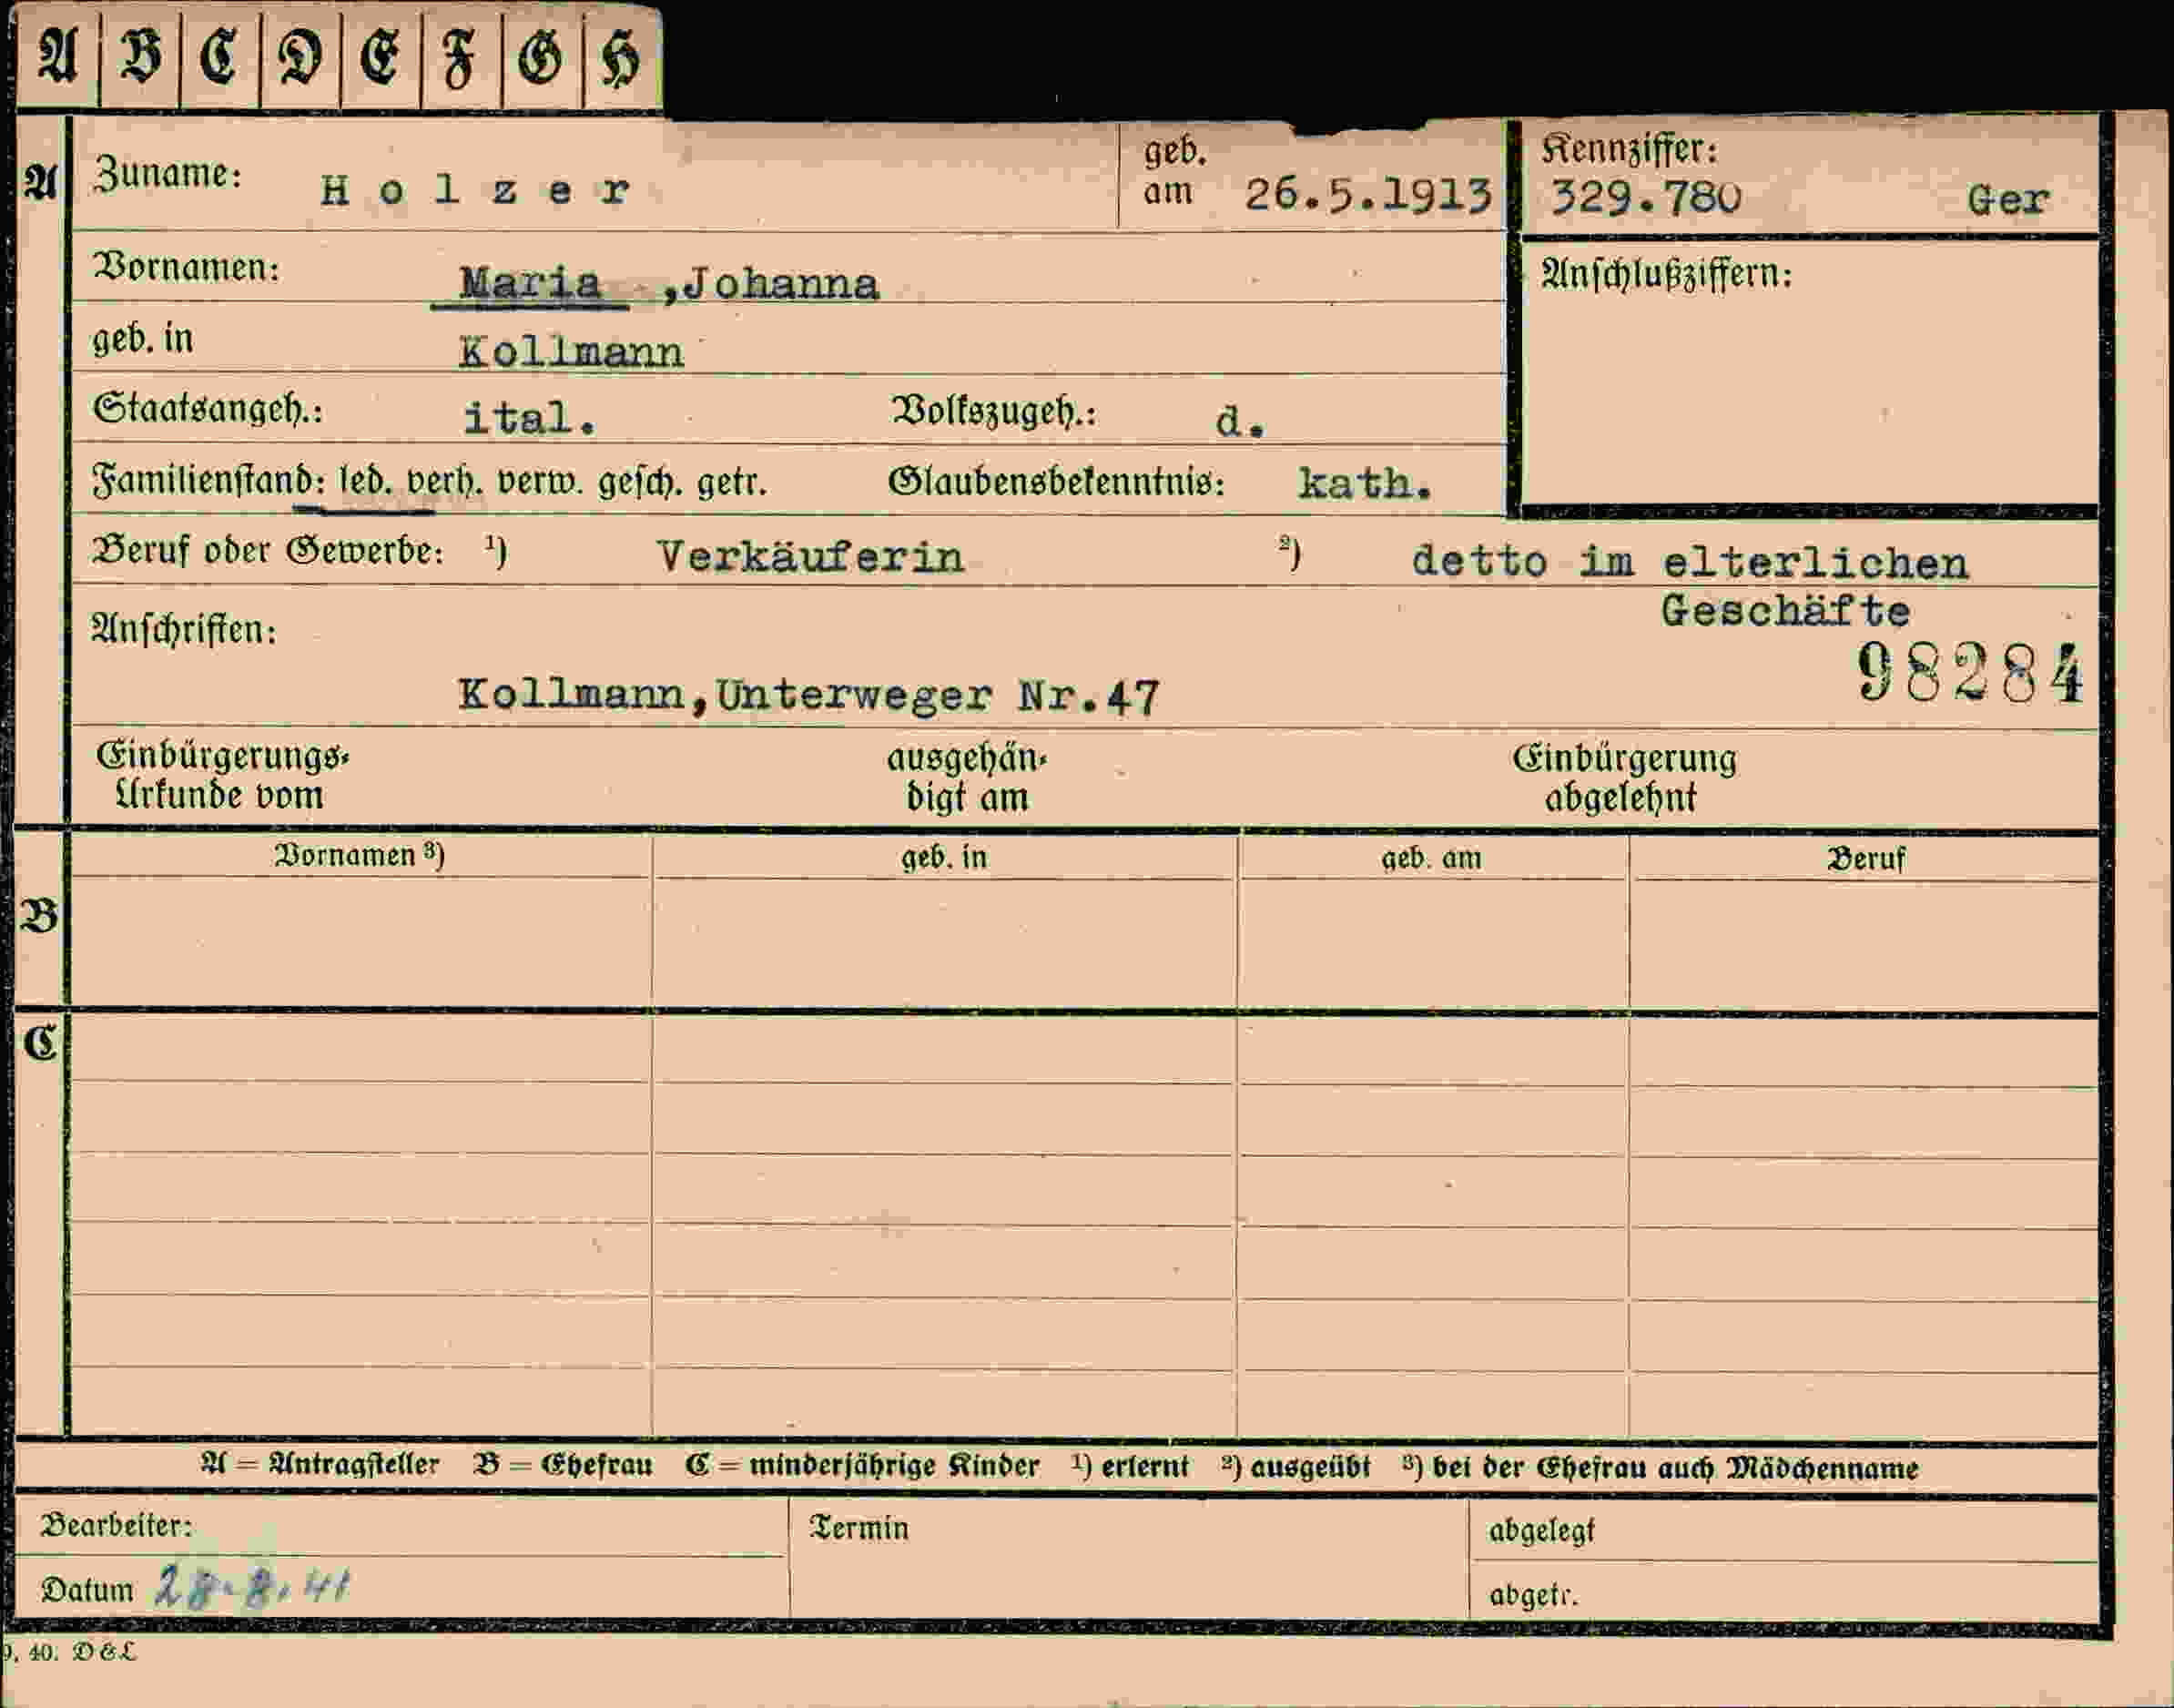 A B C D E F G H
A Zuname: Holzer geb. am 26.5.1913 Kennziffer: 329.780 Ger
Vornamen: Maria ,Johanna Anschlußziffern:
geb. in Kollmann
Staatsangeh.: ital. Volkszugeh.: d.
Familienstand: led. verh. verw. gesch. getr. Glaubensbekenntnis: kath.
Beruf oder Gewerbe: ¹) Verkäuferin ²) detto im elterlichen
Geschäfte
Anschriften:
98284
Kollmann,Unterweger Nr.47
Einbürgerungs- ausgehän- Einbürgerung
Urkunde vom digt am abgelehnt
Vornamen ³) geb. in geb. am Beruf
B
C
A = Antragsteller B = Ehefrau C = minderjährige Kinder ¹) erlernt ²) ausgeübt ³) bei der Ehefrau auch Mädchenname
Bearbeiter: Termin abgelegt
Datum 28.8.41 abgetr.
9. 40. D&L